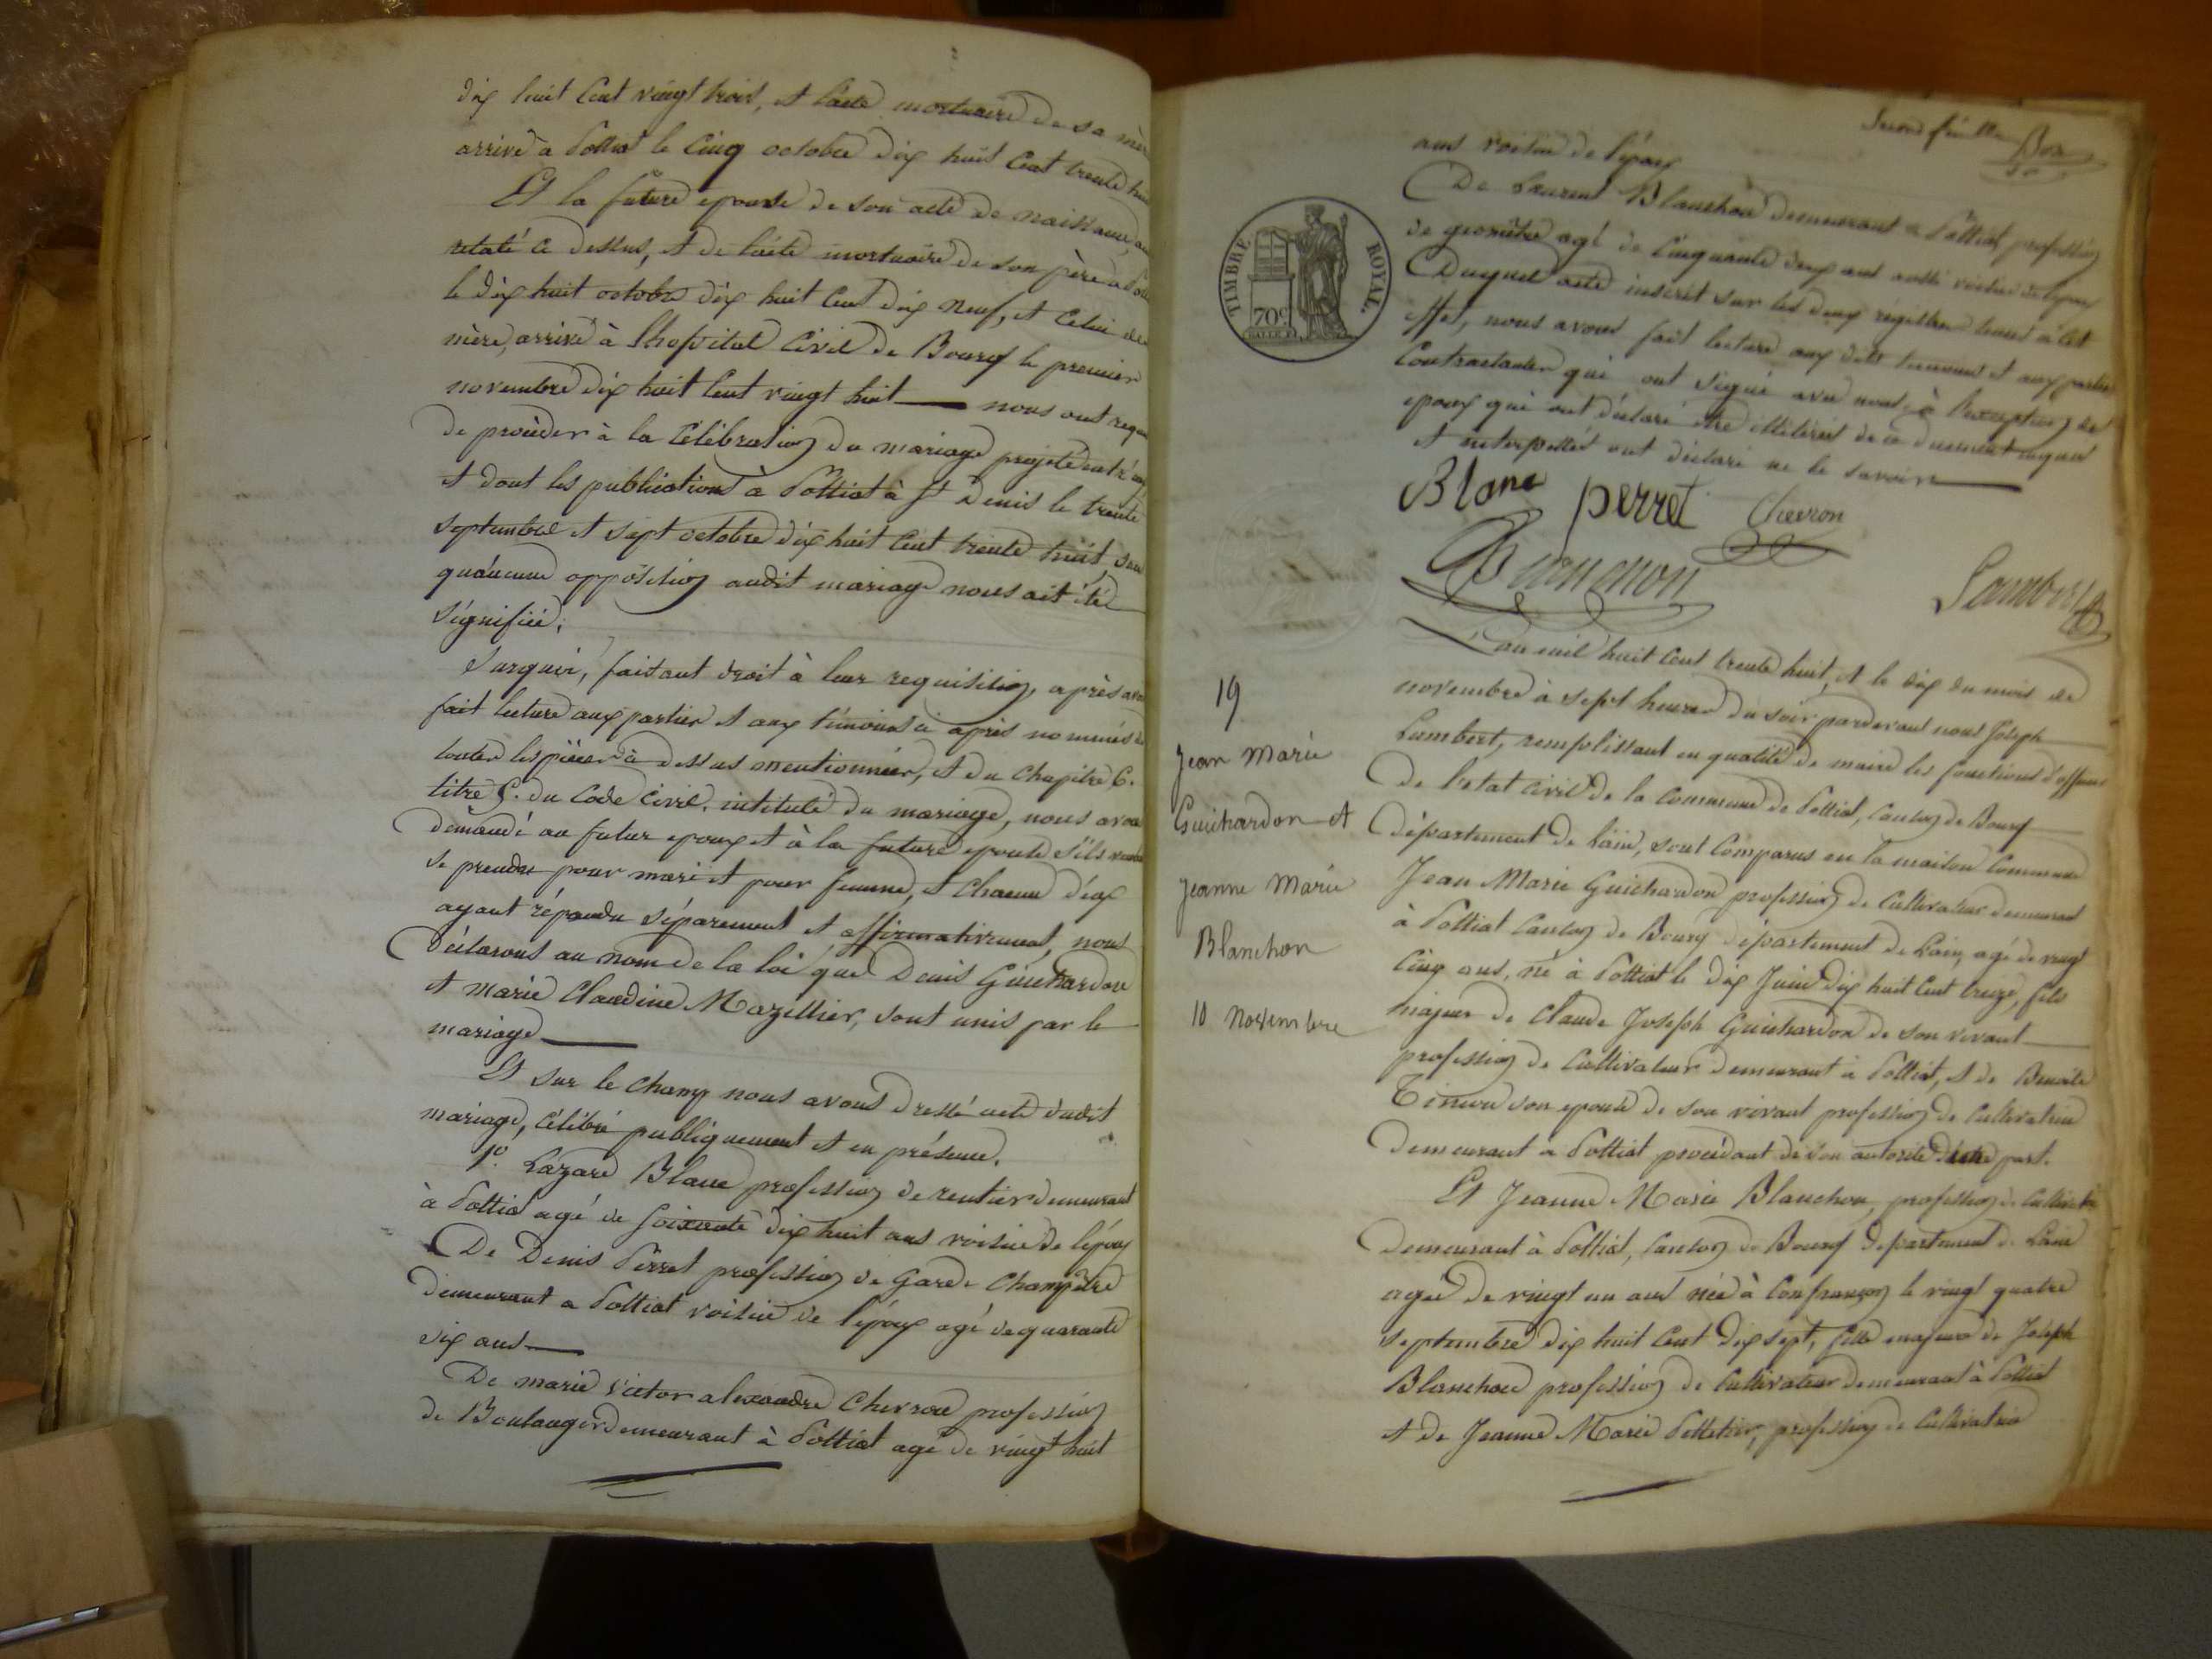 dix huit cent vingt trois, et l'acte mortuaire de sa mère
arrivé à Polliat le cinq octobre dix huit cent trente huit
Et la future epouse de son acte de naissance,
relaté ci dessus, et de l'acte mortuaire de son père à
le dix huit octobre dix huit cent dix neuf, et celui de
mère, arrivé à Lhopital civil de Bourg le premier
novembre dix huit cent vingt huit — nous ont requis
de procéder à la célébration du mariage projeté entr'eux
et dont les publications à Polliat à St Denis le trente
septembre et sept octobre dix huit cent trente huit, sans
qu'aucune opposition audit mariage nous ait été
signifiée;
Surquoi, faisant droit à leur requisition, après avoir
fait lecture aux parties et aux témoins ci après nommés de
toutes les pièces ci dessus mentionnées, et du chapitre 6.
titre 5. du Code civil, intitulé du mariage, nous avons
demandé au futur epoux et à la future epouse s'ils veulent
se prendre pour mari et pour femme, et chacun d'eux
ayant répondu séparement et affirmativement, nous
déclarons au nom de la loi que Denis Guichardon
et marie Claudine Mazillier, sont unis par le
mariage —
Et sur le champ nous avons dressé acte dudit
mariage, célébré publiquement et en présence.
1º. Lazare Blanc profession de rentier demeurant
à Polliat agé de soixante dix huit ans voisin de l'époux
De Denis Perret profession de Garde Champêtre
demeurant a Polliat voisin de l'époux agé de quarante
six ans —
De marie victor alexandre Chevron profession
de Boulanger demeurant à Polliat agé de vingt huit
Second feuillet
ans voisin de l'époux
De Laurent Blanchon demeurant a Polliat profession
de géomètre agé de cinquante deux ans aussi voisin de l'époux
Duquel acte inscrit sur les deux régistres tenus à cet
effet, nous avons fait lecture aux dits témoins et aux parties
contractantes qui ont signé avec nous, à l'exception des
epoux qui ont déclaré être illitérés de ce duement requis
et interpellés ont déclaré ne le savoir —
Blanc perret Chevron
Lambert
TIMBRE ROYAL
70c
19
Jean Marie
Guichardon et
Jeanne Marie
Blanchon
10 Novembre
L'an mil huit cent trente huit, et le dix du mois de
novembre à sept heures du soir pardevant nous Joseph
Lambert, remplissant en qualité de maire les fonctions d'officier
De l'etat civil de la commune de Polliat, Canton de Bourg
département de l'ain, sont comparus en la maison commune
Jean Marie Guichardon profession de Cultivateur demeurant
à Polliat Canton de Bourg département de Lain, agé de vingt
cinq ans, né à Polliat le dix Juin dix huit cent treize, fils
majeur de Claude Joseph Guichardon de son vivant
profession de Cultivateur demeurant à Polliat, et de Benoite
son epouse de son vivant profession de Cultivatrice
demeurant a Polliat procédant de son autorité d'une part.
Et Jeanne Marie Blanchon, profession de Cultivatrice
demeurant à Polliat, Canton de Bourg departement de Lain
agée de vingt un ans née à Confrançon le vingt quatre
septembre dix huit cent dix sept, fille majeure de Joseph
Blanchon profession de Cultivateur demeurant à Polliat
et de Jeanne Marie Pelletier, profession de Cultivatrice